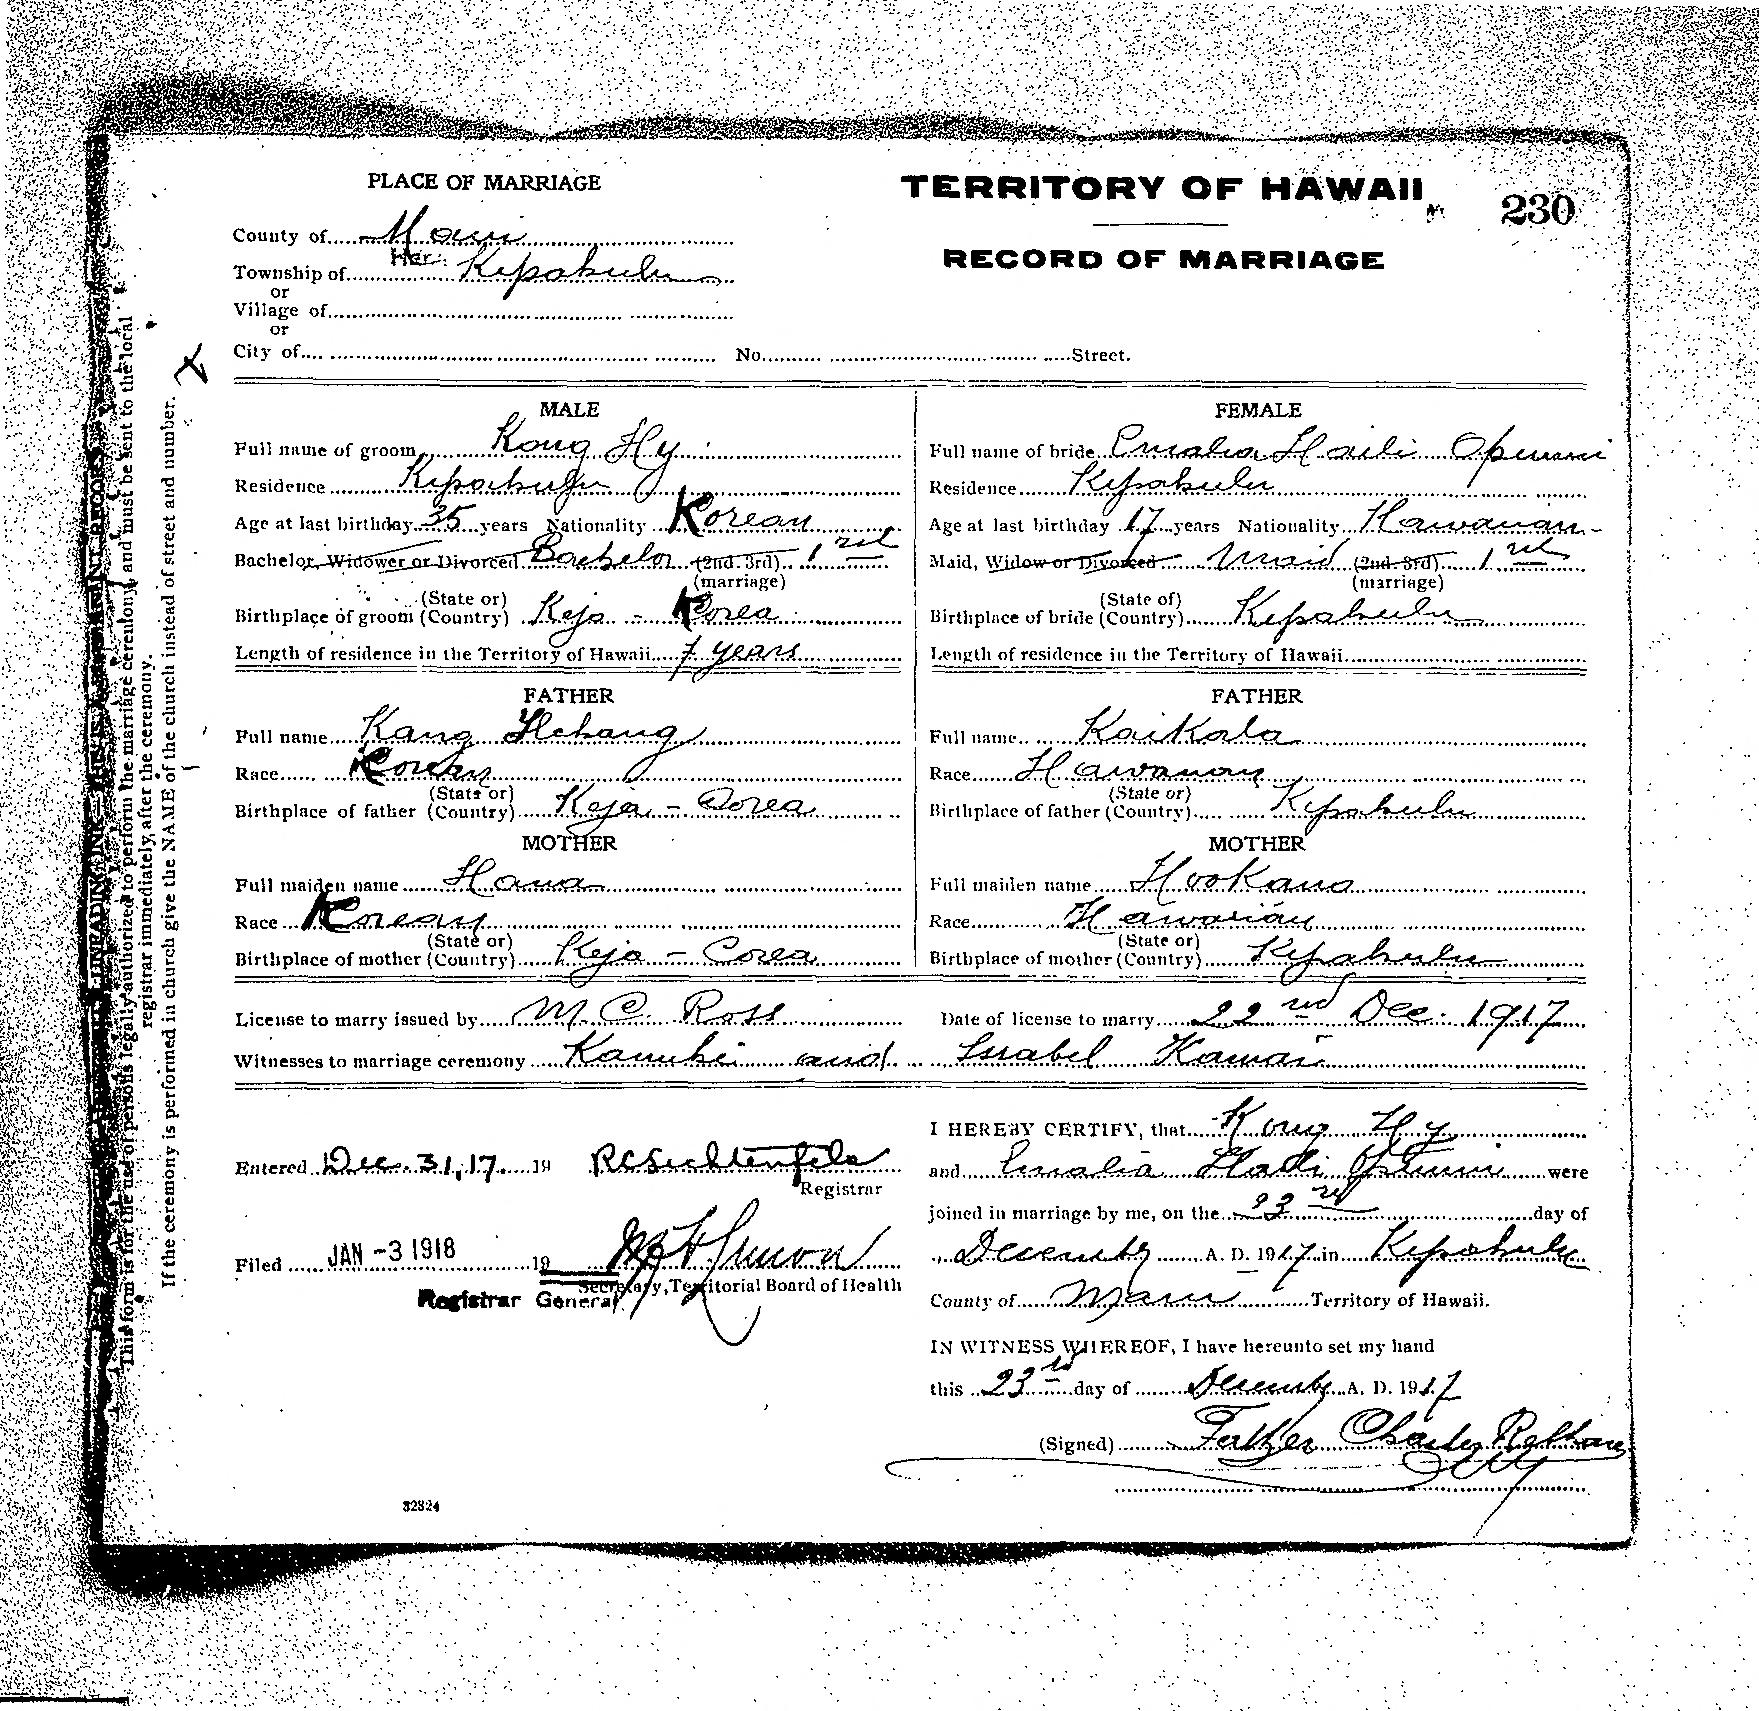 PLACE OF MARRIAGE
TERRITORY OF HAWAII
230
County of Maui
RECORD OF MARRIAGE
Township of Kipahulu
or
Village of
or
City of No. Street.
MALE
Full name of groom Kong Hy
Residence Kipahulu
Age at last birthday 35 years Nationality Korean
Bachelor, Widower or Divorced Bachelor (2nd-3rd) 1
(marriage)
(State or)
Birthplace of groom (Country) Keja - Korea
Length of residence in the Territory of Hawaii 7 years
FATHER
Full name Kang Hchang
Race Korean
(State or)
Birthplace of father (Country) Keja - Corea
MOTHER
Full maiden name Hana
Race Korean
(State or)
Birthplace of mother (Country) Keja - Corea
FEMALE
Full name of bride Emalia Haili Opunui
Residence Kipahulu
Age at last birthday 17 years Nationality Hawaiian
Maid, Widow or Divorced Maid (2nd-3rd) 1
(marriage)
(State of)
Birthplace of bride (Country) Kipahulu
Length of residence in the Territory of Hawaii
FATHER
Full name Kaikala
Race Hawaiian
(State or)
Birthplace of father (Country) Kipahulu
MOTHER
Full maiden name Hookano
Race Hawaiian
(State or)
Birthplace of mother (Country) Kipahulu
License to marry issued by M. C. Ross Date of license to marry 22nd Dec. 1917
Witnesses to marriage ceremony and Issabel
Entered Dec. 31, 17. 19
Registrar
Filed JAN -3 1918 19
Secretary, Territorial Board of Health
Registrar General
I HEREBY CERTIFY, that Kong Hy
and Emalia Haili Opunui were
joined in marriage by me, on the 23rd day of
December A. D. 1917 in Kipahulu
County of Maui Territory of Hawaii.
IN WITNESS WHEREOF, I have hereunto set my hand
this 23rd day of December A. D. 1917
(Signed) Father Charles
32824
This form is for the use of persons legally authorized to perform the marriage ceremony, and must be sent to the local
registrar immediately after the ceremony.
If the ceremony is performed in church give the NAME of the church instead of street and number.